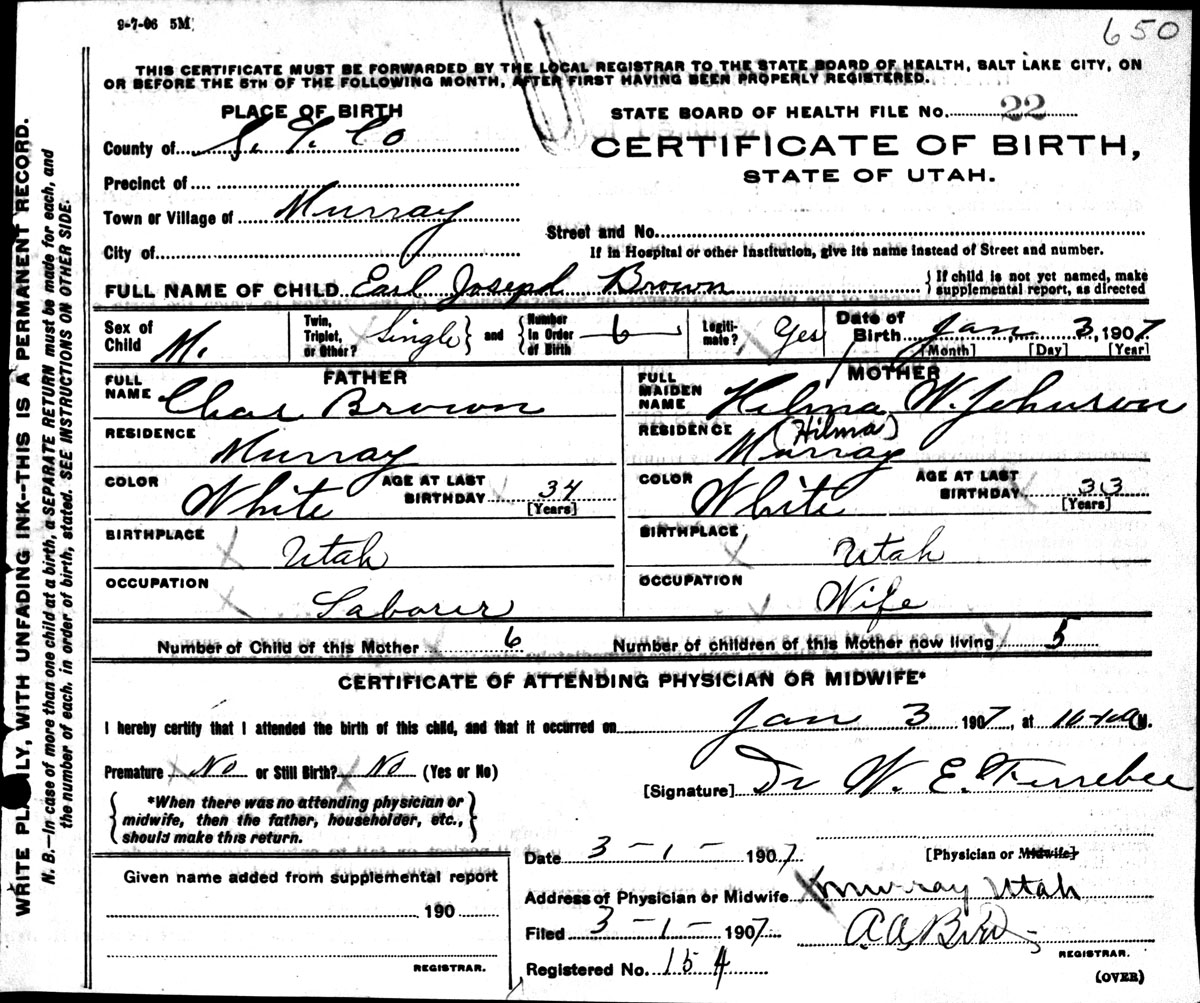 9-7-06 5M
650
THIS CERTIFICATE MUST BE FORWARDED BY THE LOCAL REGISTRAR TO THE STATE BOARD OF HEALTH, SALT LAKE CITY, ON
OR BEFORE THE 5TH OF THE FOLLOWING MONTH, AFTER FIRST HAVING BEEN PROPERLY REGISTERED.
PLACE OF BIRTH
STATE BOARD OF HEALTH FILE No. 22
County of S. L. Co
CERTIFICATE OF BIRTH,
STATE OF UTAH.
Precinct of
Town or Village of Murray
Street and No.
City of
If in Hospital or other Institution, give its name instead of Street and number.
FULL NAME OF CHILD Earl Joseph Brown
{ If child is not yet named, make
supplemental report, as directed
Sex of Child M.
Twin, Triplet, or Other? Single } and { Number in Order of Birth 6
Legiti-mate? Yes
Date of Birth Jan 3, 1907
[Month] [Day] [Year]
FATHER
MOTHER
FULL NAME Chas Brown
FULL MAIDEN NAME Hilma W. Johnson
(Hilma)
RESIDENCE Murray
RESIDENCE Murray
COLOR White AGE AT LAST BIRTHDAY 34 [Years]
COLOR White AGE AT LAST BIRTHDAY 33 [Years]
BIRTHPLACE Utah
BIRTHPLACE Utah
OCCUPATION Laborer
OCCUPATION Wife
Number of Child of this Mother 6 Number of children of this Mother now living 5
CERTIFICATE OF ATTENDING PHYSICIAN OR MIDWIFE*
I hereby certify that I attended the birth of this child, and that it occurred on Jan 3 1907, at M.
Premature No or Still Birth? No (Yes or No)
[Signature] Dr W. E. Ferrebee
{ *When there was no attending physician or
midwife, then the father, householder, etc.,
should make this return. }
Date 3-1-1907 [Physician or Midwife]
Given name added from supplemental report
Address of Physician or Midwife Murray Utah
190
Filed 3-1-1907
REGISTRAR.
REGISTRAR.
Registered No. 154
(OVER)
WRITE PLAINLY, WITH UNFADING INK--THIS IS A PERMANENT RECORD.
N. B.—In case of more than one child at a birth, a SEPARATE RETURN must be made for each, and
the number of each, in order of birth, stated. SEE INSTRUCTIONS ON OTHER SIDE.